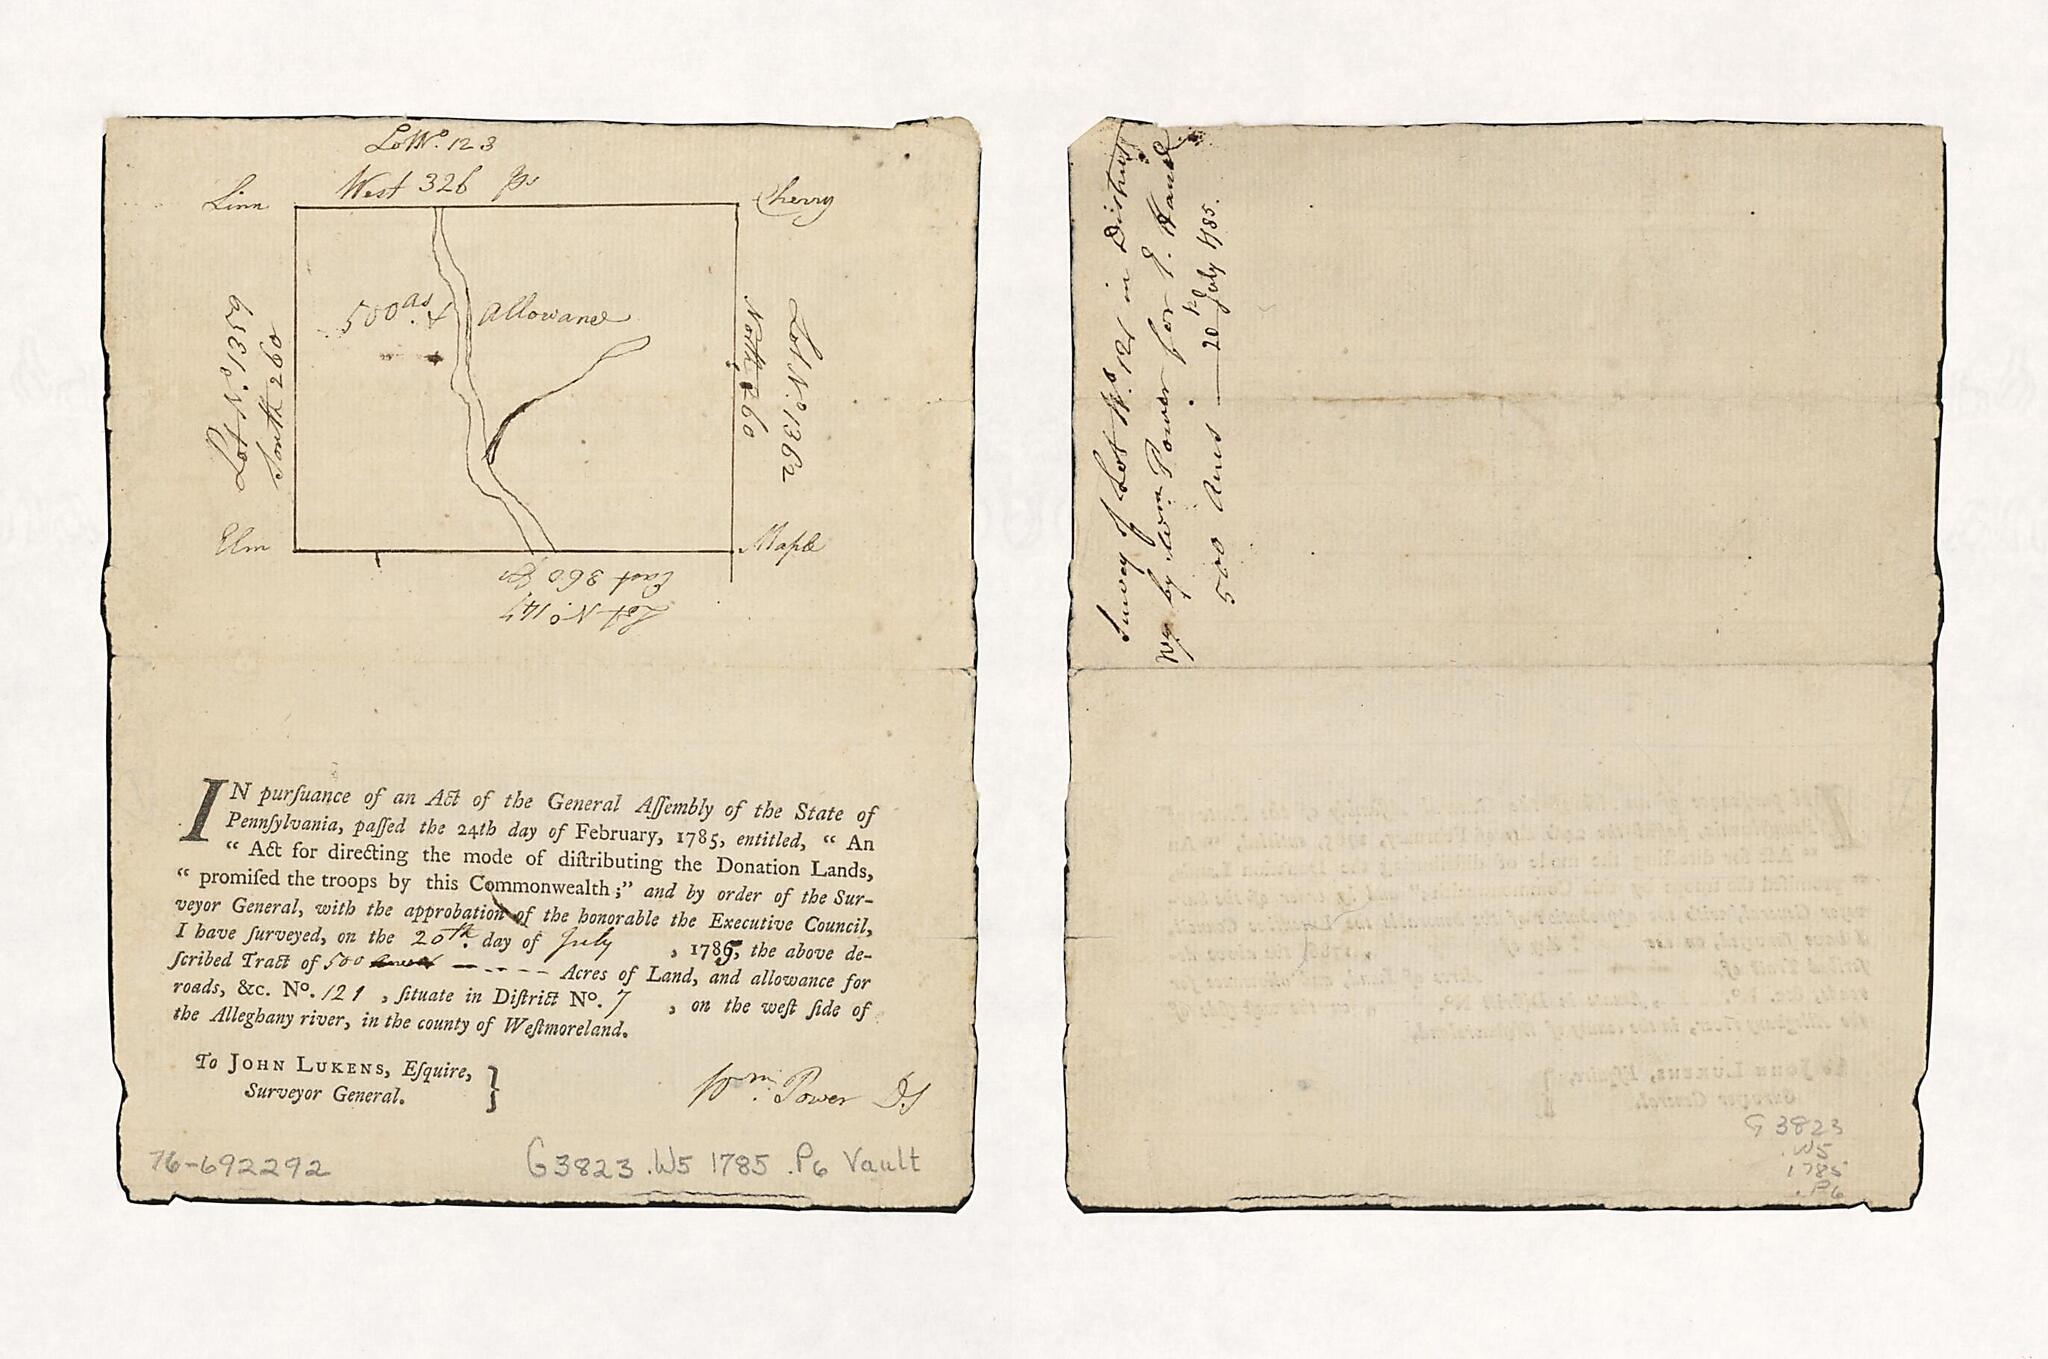 Lot No. 123
West 326 ps
Linn
Cherry
500 as. & Allowance
Lot No. 1359
South 260
North 260
Lot No. 1362
Elm
Maple
East 360 ps
Lot No. 147
IN purſuance of an Act of the General Aſſembly of the State of
Pennſylvania, paſſed the 24th day of February, 1785, entitled, “ An
“ Act for directing the mode of diſtributing the Donation Lands,
“ promiſed the troops by this Commonwealth;” and by order of the Sur-
veyor General, with the approbation of the honorable the Executive Council,
I have ſurveyed, on the 20th. day of July , 1785, the above de-
ſcribed Tract of 500 Acres of Land, and allowance for
roads, &c. No. 121 , ſituate in Diſtrict No. 7 , on the weſt ſide of
the Alleghany river, in the county of Weſtmoreland.
To JOHN LUKENS, Eſquire,
Surveyor General. }
Wm. Power D.S
76-692292
G3823 .W5 1785 .P6 Vault
Survey of Lot No. 121 in District
No 7 by Wm. Power for E. Hand
500 Acres — 20th July 1785.
G 3823
.W5
1785
.P6